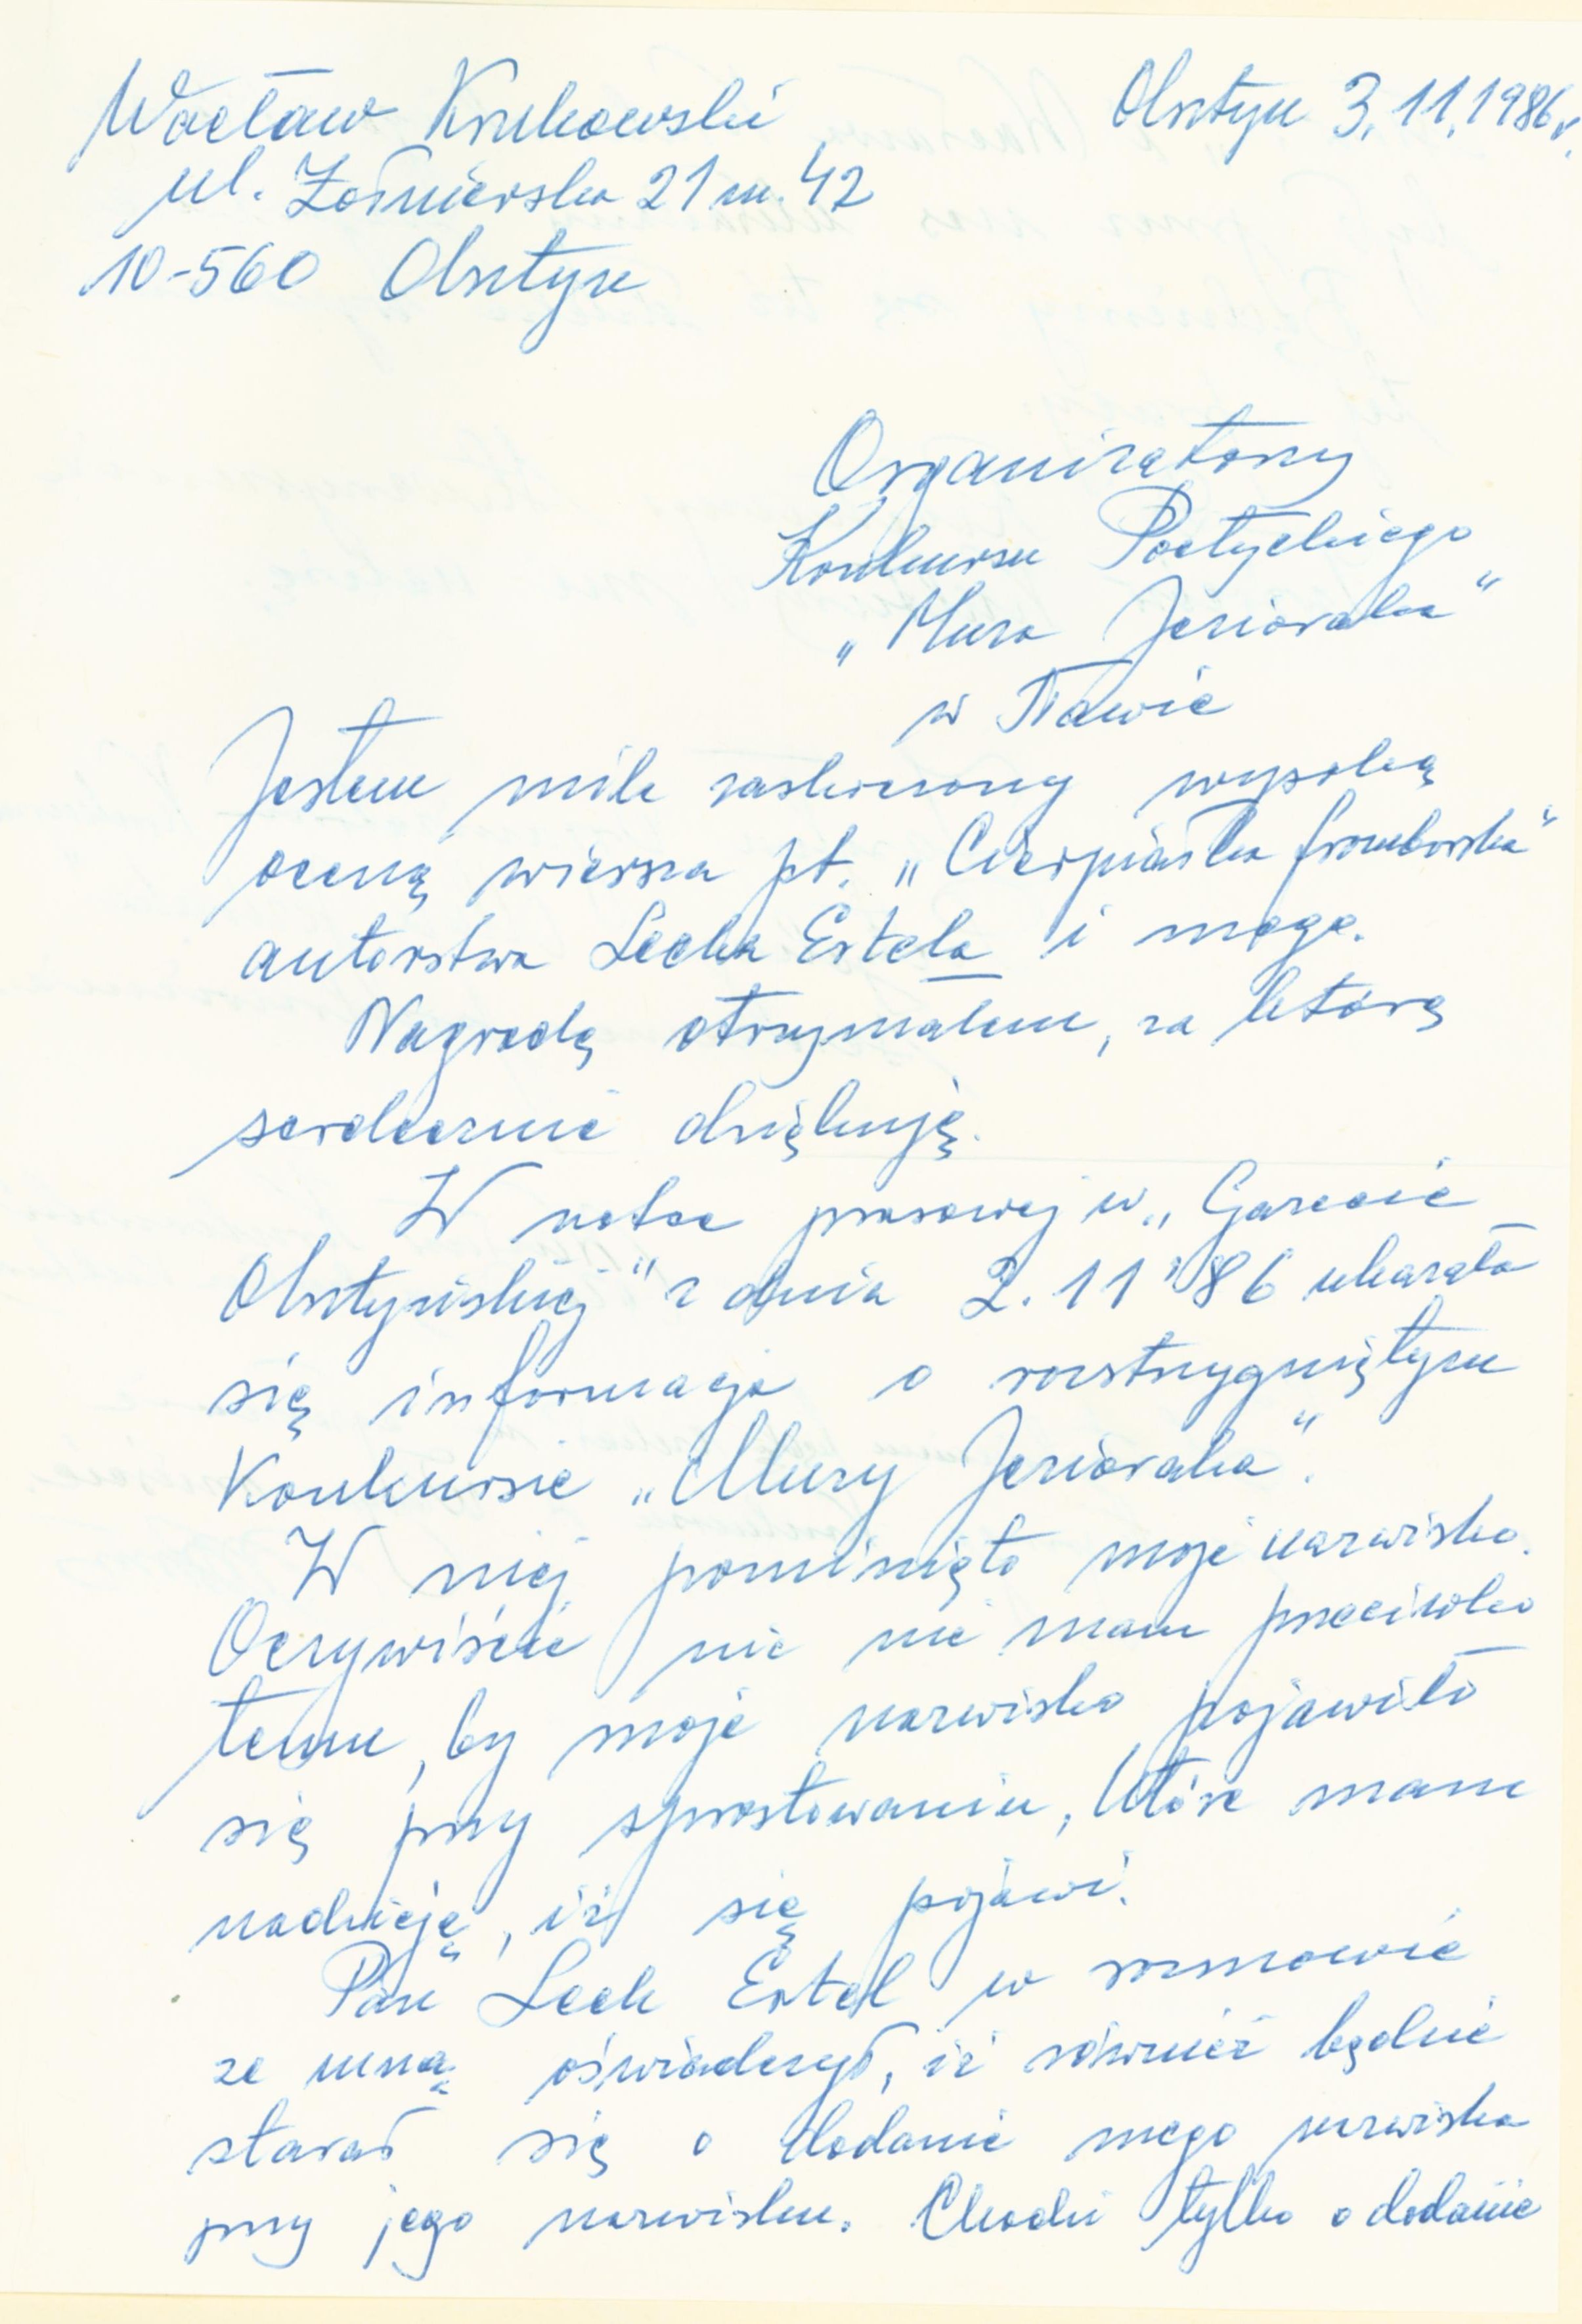 Wacław Krukowski
Olsztyn 3.11.1986r.
ul. Żołnierska 21 m. 42
10-560 Olsztyn
Organizatorzy
Konkursu Poetyckiego
„Mura Jezioraka"
w Iławie
Jestem mile zaskoczony wysoką
oceną wiersza pt. „Cierpiałka fromborska"
autorstwa Lecha Ertela i mego.
Nagrodę otrzymałem, za którą
serdecznie dziękuję.
W notce prasowej w „Gazecie
Olsztyńskiej" z dnia 2.11'86 ukazała
się informacja o rozstrzygniętym
Konkursie „Mury Jezioraka".
W niej pominięto moje nazwisko.
Oczywiście nic nie mam przeciwko
temu, by moje nazwisko pojawiło
się przy sprostowaniu, które mam
nadzieję, iż się pojawi.
Pan Lech Ertel w rozmowie
ze mną oświadczył, iż również będzie
starał się o dodanie mego nazwiska
przy jego nazwisku. Chodzi tylko o dodanie